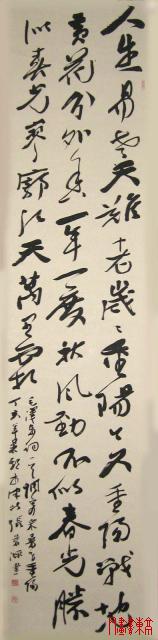 人生易老天難老歲々重陽今又重陽戰地
黃花分外香一年一度秋風勁不似春光勝
似春光寥廓江天萬里霜
毛澤東詞一首調寄采桑子重陽
丁亥年